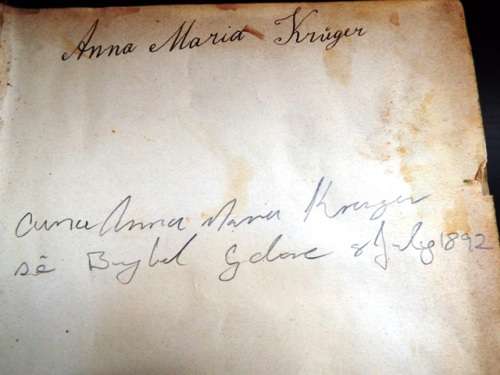 Anna Maria Krüger
Anna Maria Kruger
sê Buybel 8 July 1892